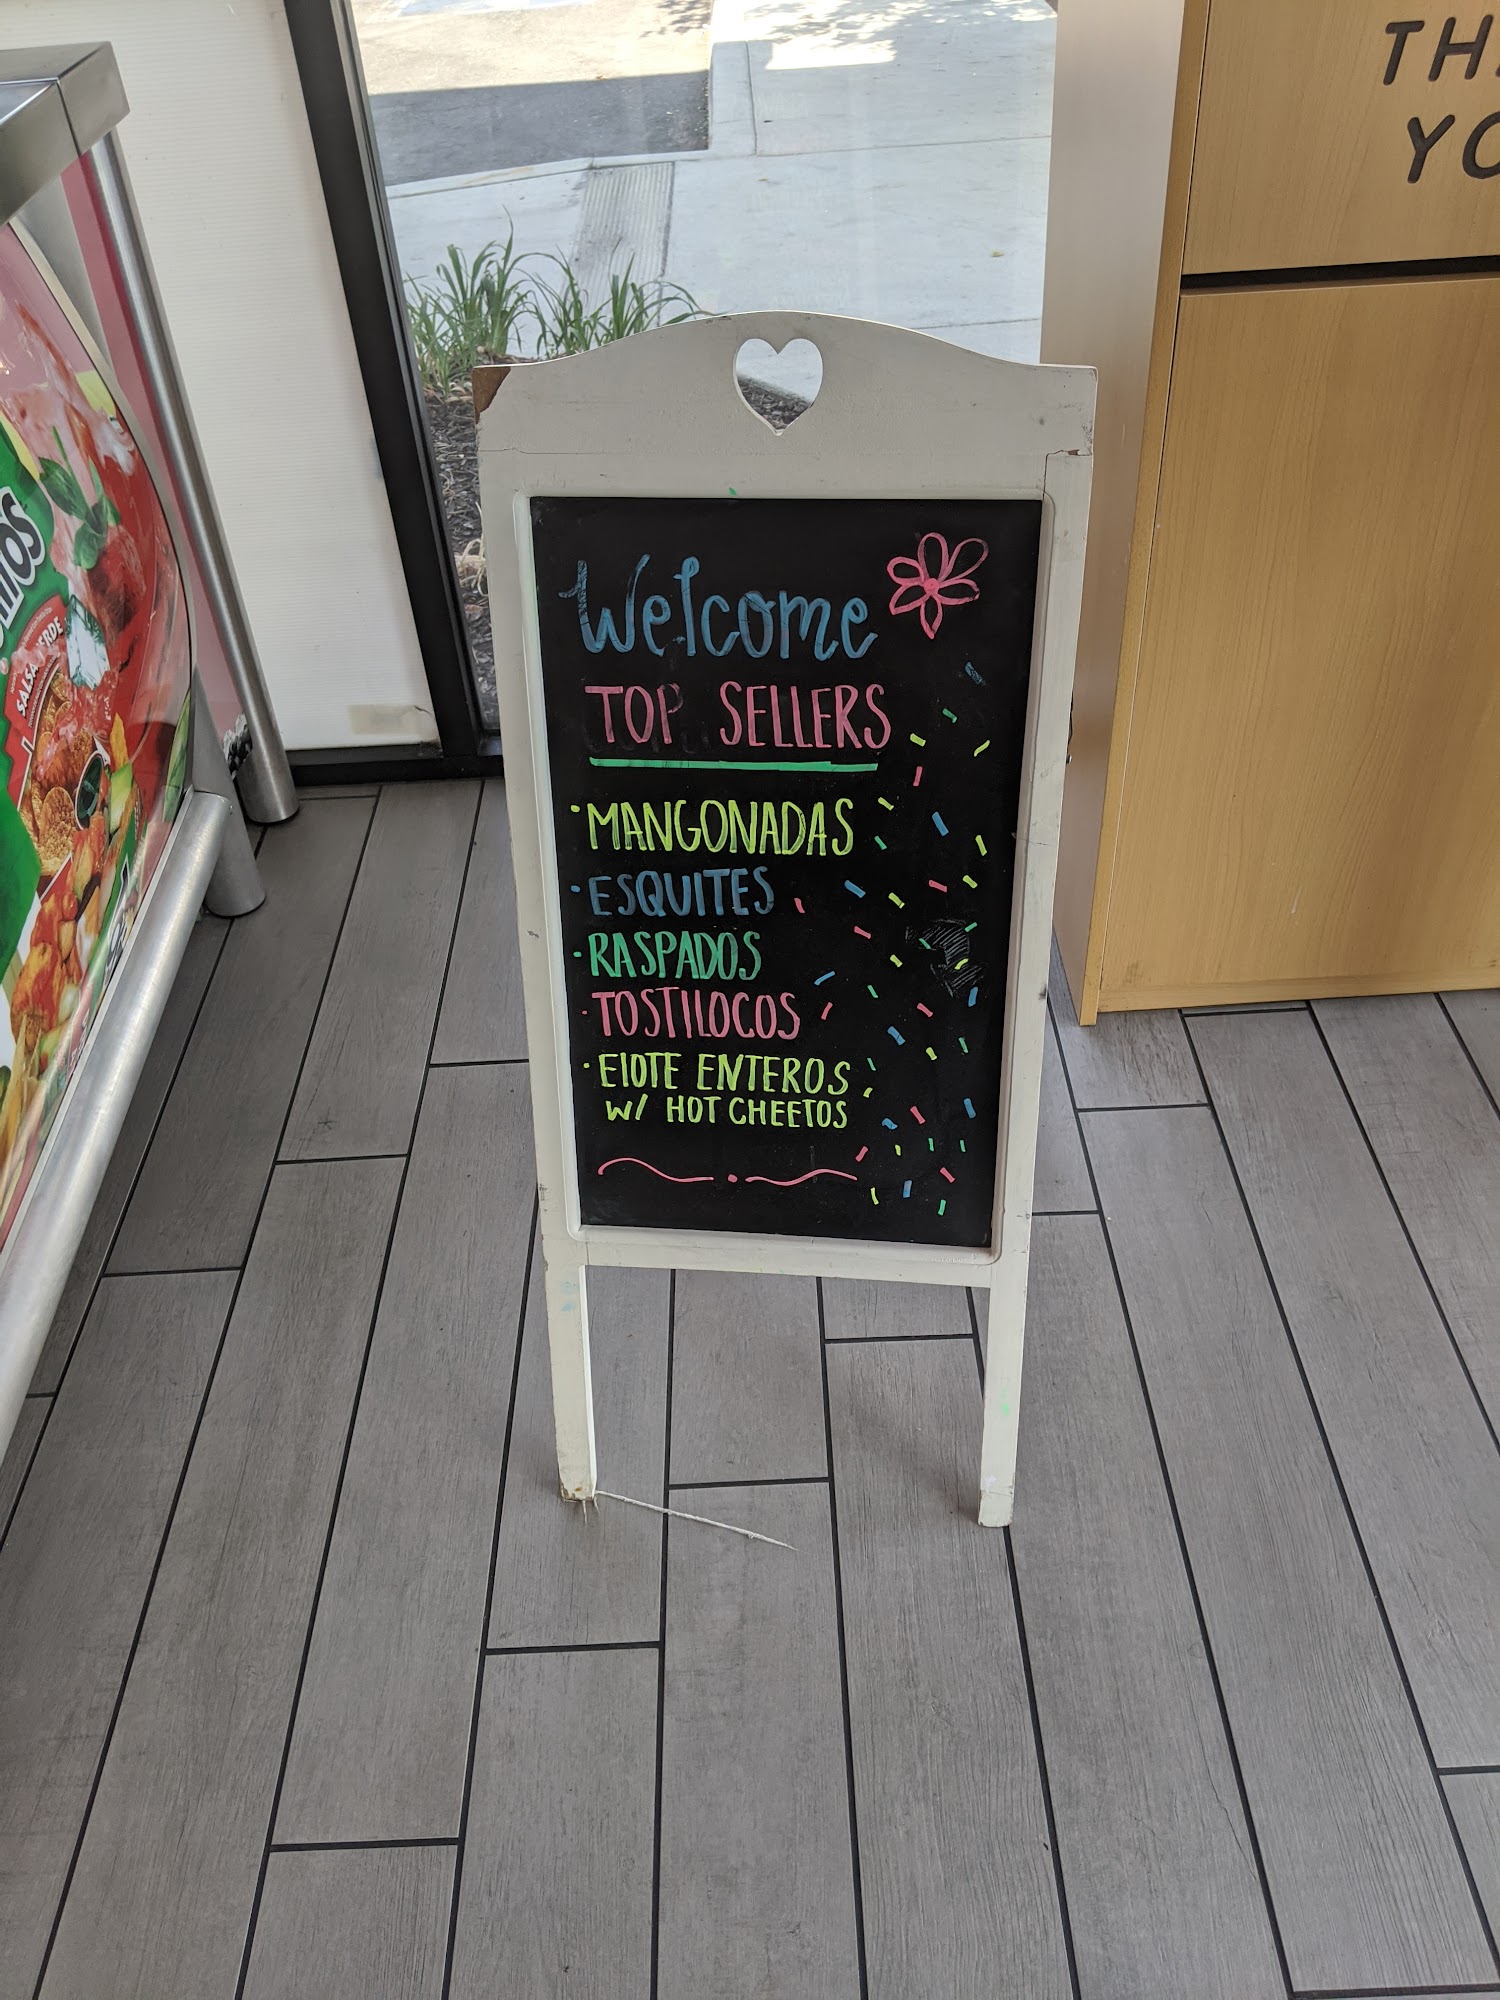 TH
YO
Welcome
TOP SELLERS
·MANGONADAS
·ESQUITES
·RASPADOS
·TOSTILOCOS
·ElOTE ENTEROS
W/ HOT CHEETOS
SALSA VERDE